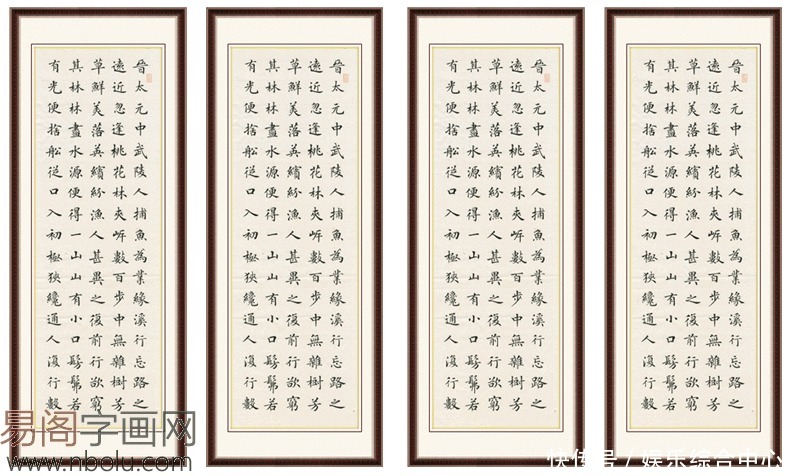 晉太元中武陵人捕魚為業緣溪行忘路之
遠近忽逢桃花林夾岸數百步中無雜樹芳
草鮮美落英繽紛漁人甚異之復前行欲窮
其林林盡水源便得一山山有小口髣髴若
有光便捨船從口入初極狹纔通人復行數
晉太元中武陵人捕魚為業緣溪行忘路之
遠近忽逢桃花林夾岸數百步中無雜樹芳
草鮮美落英繽紛漁人甚異之復前行欲窮
其林林盡水源便得一山山有小口髣髴若
有光便捨船從口入初極狹纔通人復行數
晉太元中武陵人捕魚為業緣溪行忘路之
遠近忽逢桃花林夾岸數百步中無雜樹芳
草鮮美落英繽紛漁人甚異之復前行欲窮
其林林盡水源便得一山山有小口髣髴若
有光便捨船從口入初極狹纔通人復行數
晉太元中武陵人捕魚為業緣溪行忘路之
遠近忽逢桃花林夾岸數百步中無雜樹芳
草鮮美落英繽紛漁人甚異之復前行欲窮
其林林盡水源便得一山山有小口髣髴若
有光便捨船從口入初極狹纔通人復行數
易阁字画网
www.nbolu.com
快传号 / 娱乐综合中心